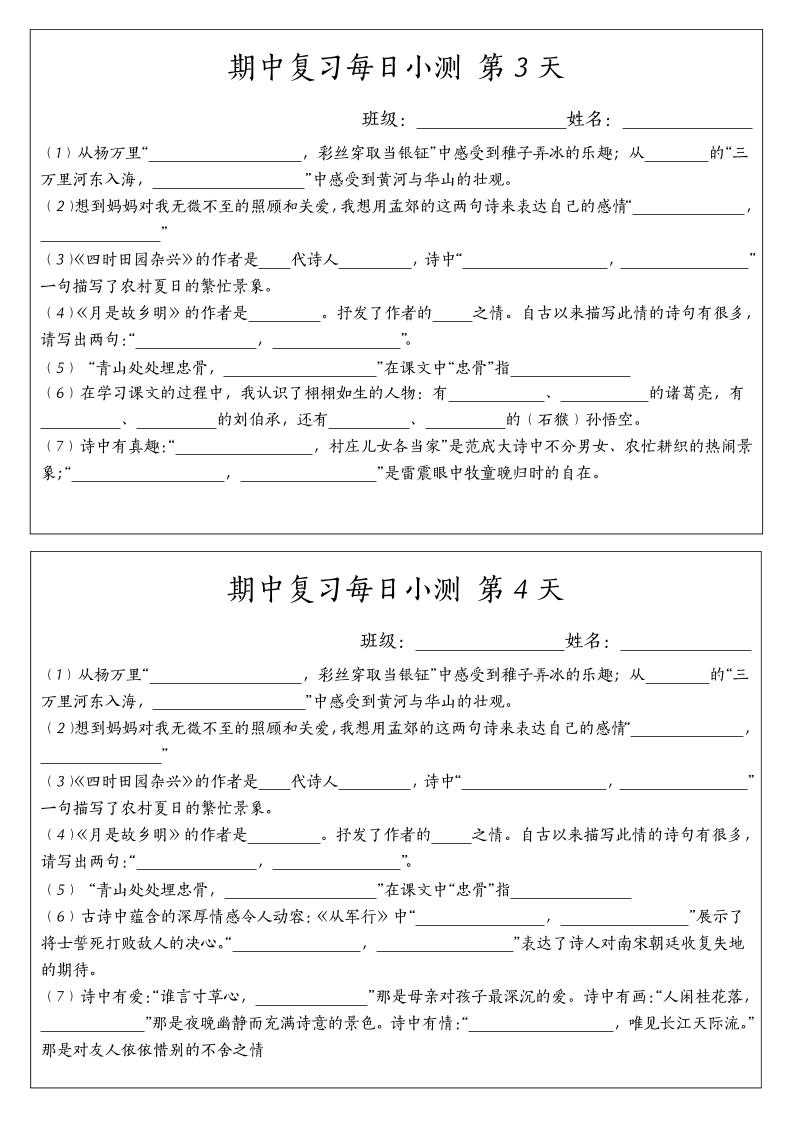 期中复习每日小测 第 3 天
班级：______________姓名：____________
（1）从杨万里“______________，彩丝穿取当银钲”中感受到稚子弄冰的乐趣；从______的“三
万里河东入海，______________”中感受到黄河与华山的壮观。
（2）想到妈妈对我无微不至的照顾和关爱，我想用孟郊的这两句诗来表达自己的感情“__________，
___________”
（3）《四时田园杂兴》的作者是___代诗人_______，诗中“_____________，____________”
一句描写了农村夏日的繁忙景象。
（4）《月是故乡明》的作者是_______。抒发了作者的____之情。自古以来描写此情的诗句有很多，
请写出两句：“___________，____________”。
（5）“青山处处埋忠骨，______________”在课文中“忠骨”指___________
（6）在学习课文的过程中，我认识了栩栩如生的人物：有_________、________的诸葛亮，有
_______、_______的刘伯承，还有_______、_______的（石猴）孙悟空。
（7）诗中有真趣：“____________，村庄儿女各当家”是范成大诗中不分男女、农忙耕织的热闹景
象；“______________，____________”是雷震眼中牧童晚归时的自在。
期中复习每日小测 第 4 天
班级：______________姓名：____________
（1）从杨万里“______________，彩丝穿取当银钲”中感受到稚子弄冰的乐趣；从______的“三
万里河东入海，______________”中感受到黄河与华山的壮观。
（2）想到妈妈对我无微不至的照顾和关爱，我想用孟郊的这两句诗来表达自己的感情“__________，
___________”
（3）《四时田园杂兴》的作者是___代诗人_______，诗中“_____________，____________”
一句描写了农村夏日的繁忙景象。
（4）《月是故乡明》的作者是_______。抒发了作者的____之情。自古以来描写此情的诗句有很多，
请写出两句：“___________，____________”。
（5）“青山处处埋忠骨，______________”在课文中“忠骨”指___________
（6）古诗中蕴含的深厚情感令人动容：《从军行》中“____________，____________”展示了
将士誓死打败敌人的决心。“____________，____________”表达了诗人对南宋朝廷收复失地
的期待。
（7）诗中有爱：“谁言寸草心，__________”那是母亲对孩子最深沉的爱。诗中有画：“人闲桂花落，
__________”那是夜晚幽静而充满诗意的景色。诗中有情：“_____________，唯见长江天际流。”
那是对友人依依惜别的不舍之情